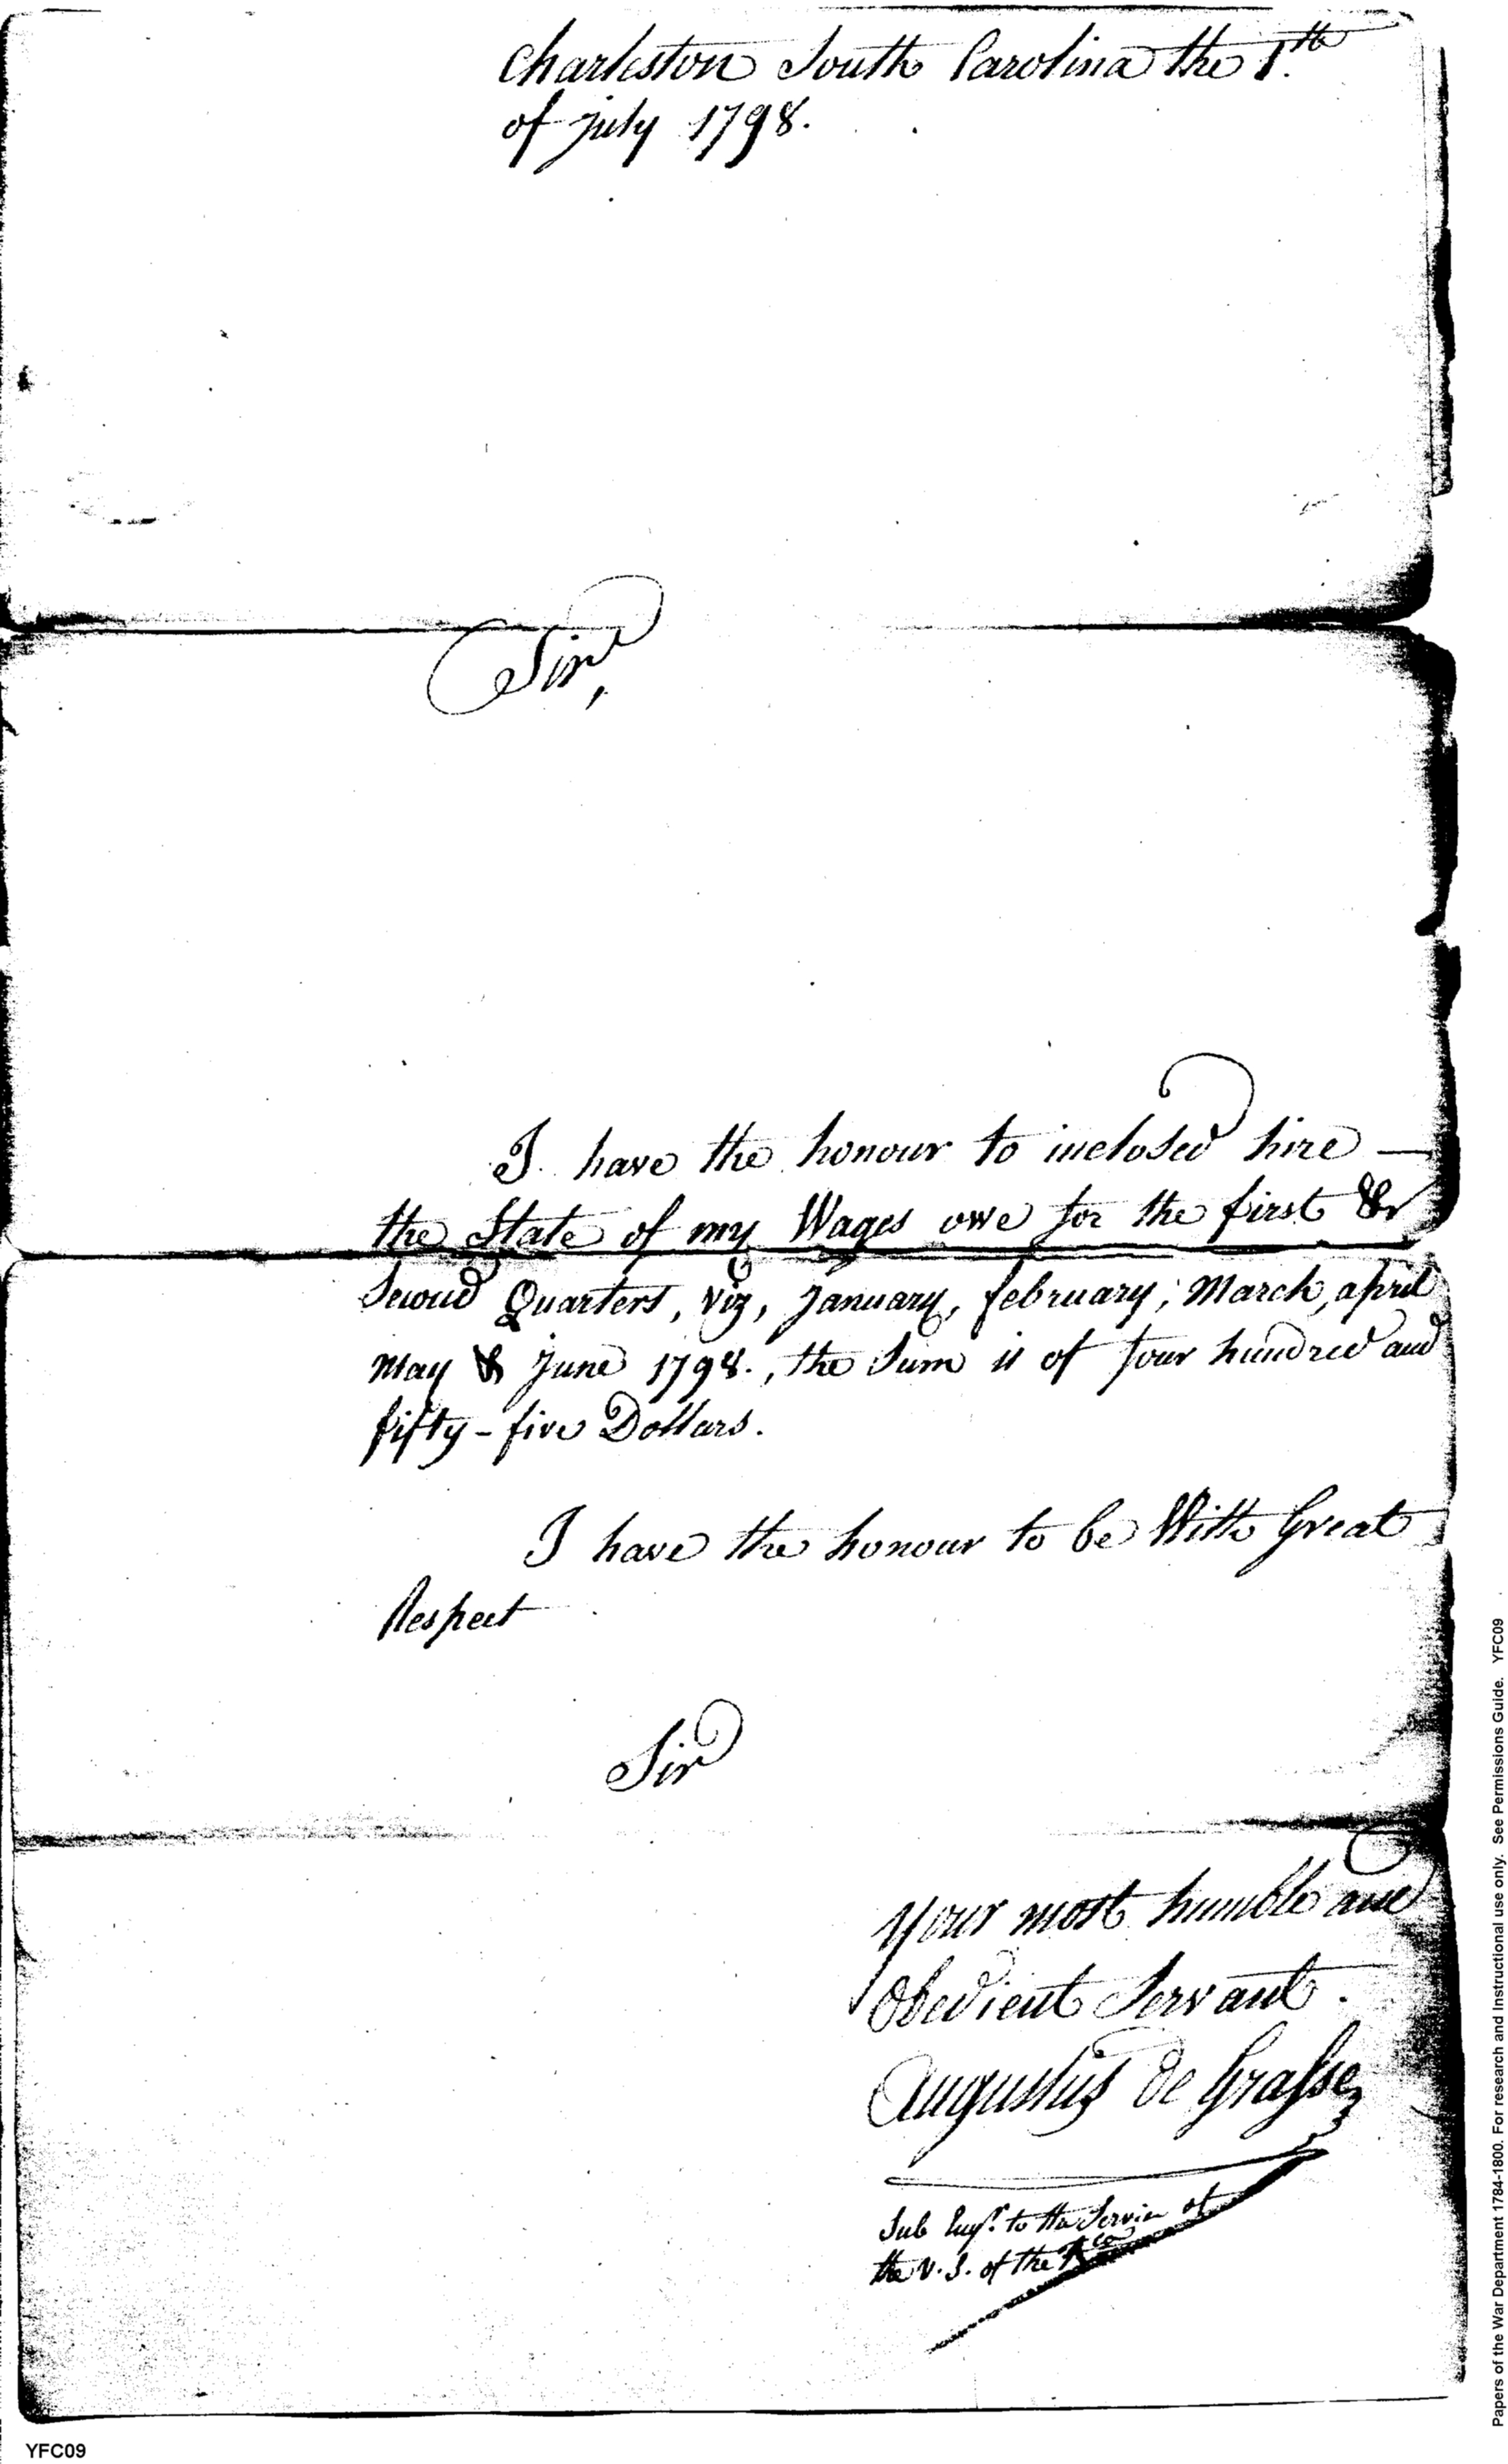 Charleston South Carolina the 1.th
of july 1798.
Sir,
I have the honour to inclosed hire —
the State of my Wages owe for the first &
Second Quarters, viz, January, february, March, april
may & June 1798., the Sum is of four hundred and
fifty-five Dollars.
I have the honour to be With Great
Respect
Sir
your most humble and
Obedient Servant.
Augustus de Grasse
Sub Engr. to the Service of
the U.S. of the
YFC09
Papers of the War Department 1784-1800. For research and Instructional use only. See Permissions Guide. YFC09